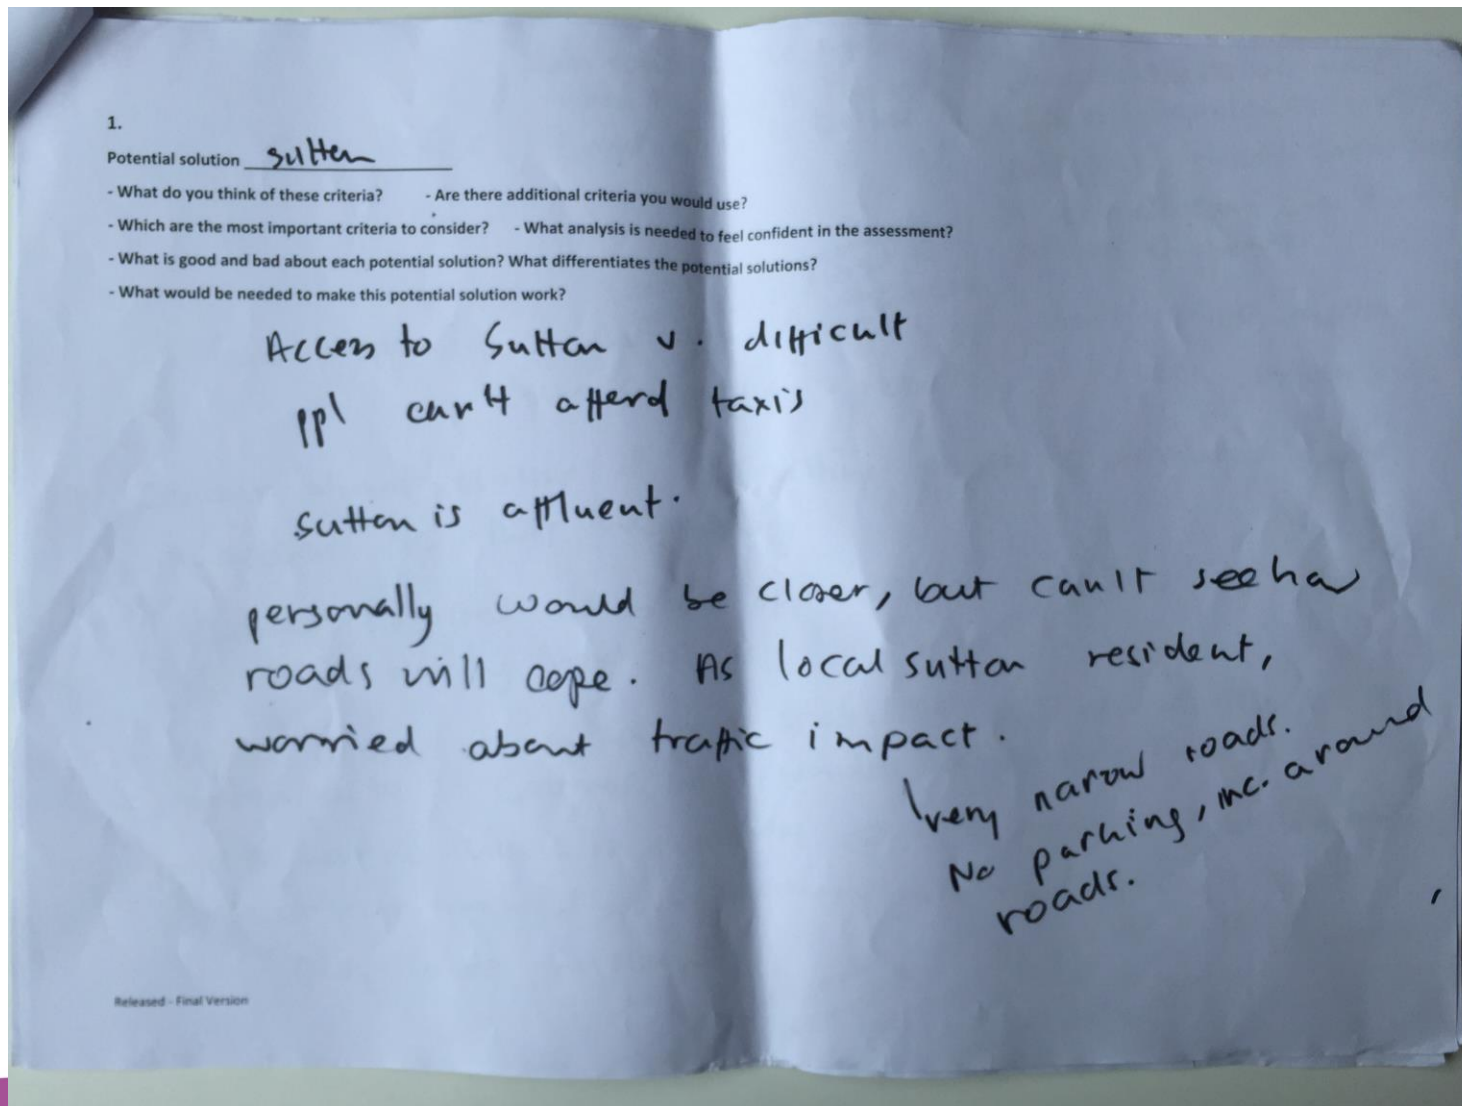 1.
Potential solution Sutton
- What do you think of these criteria? - Are there additional criteria you would use?
- Which are the most important criteria to consider? - What analysis is needed to feel confident in the assessment?
- What is good and bad about each potential solution? What differentiates the potential solutions?
- What would be needed to make this potential solution work?
Access to Sutton v. difficult
ppl can't afford taxis
Sutton is affluent.
personally would be closer, but can't see how
roads will cope. As local Sutton resident,
worried about traffic impact.
very narrow roads.
No parking, inc. around
roads.
Released - Final Version